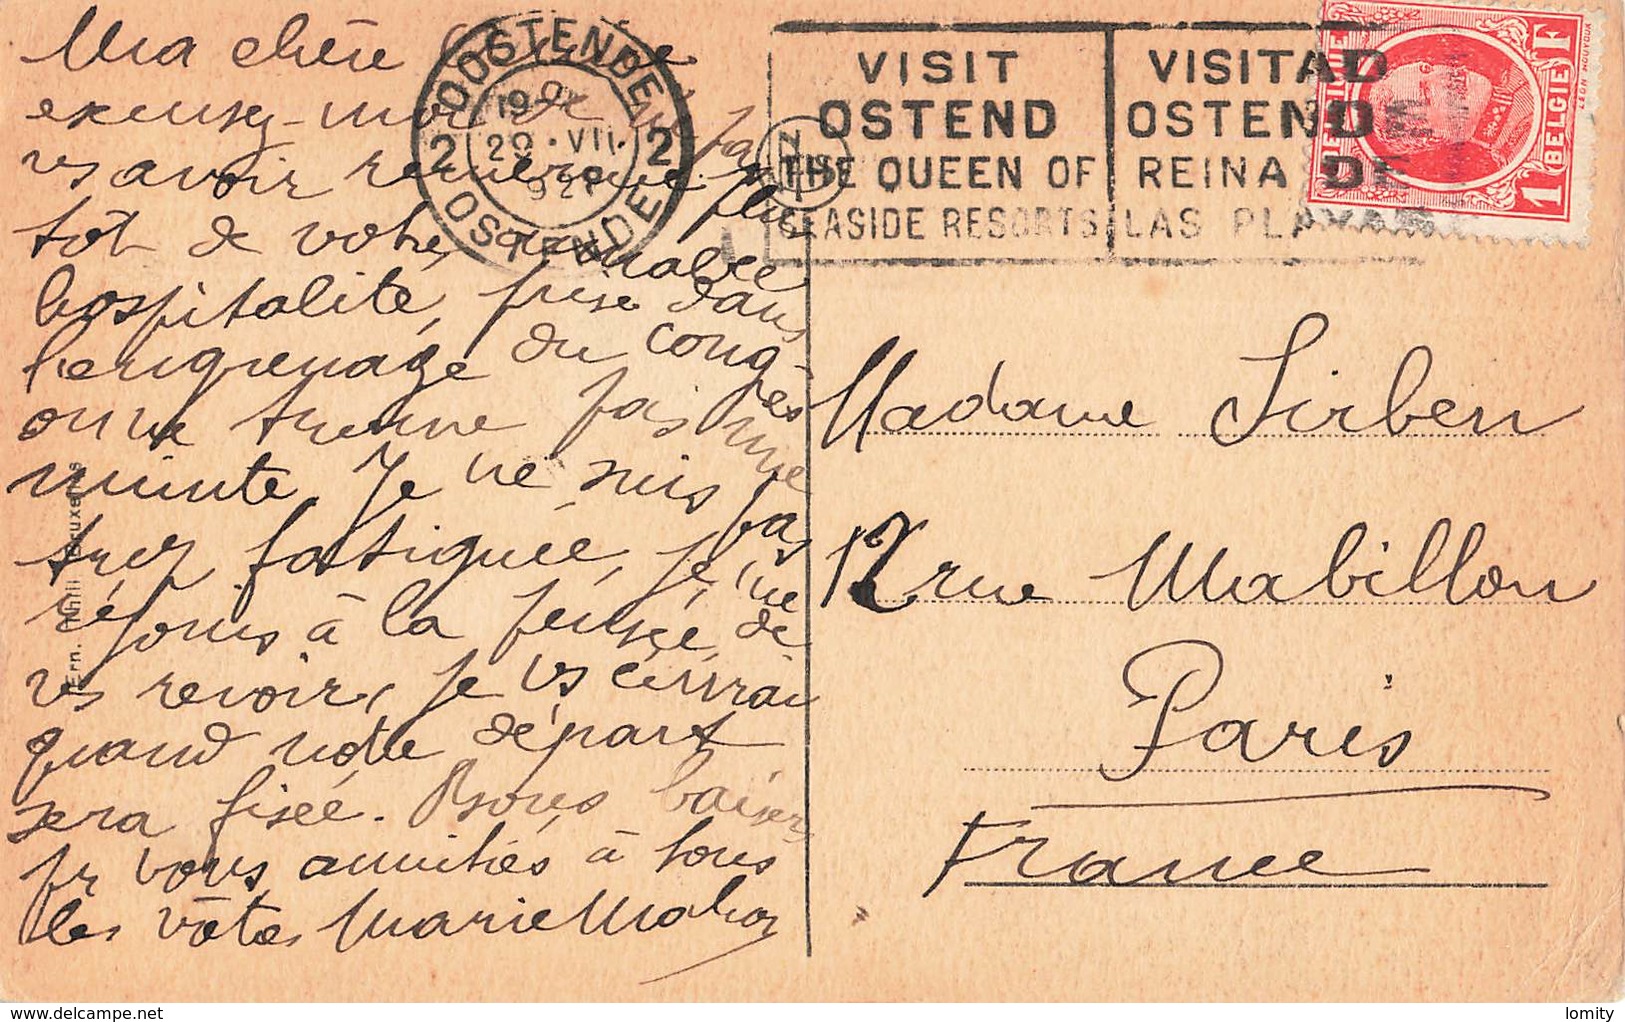 Ma chère
excusez-moi de ne pas
vs avoir remerciée plus
tôt de votre aimable
hospitalité, prise dans
l'engrenage du congrès
on ne trouve pas une
minute. Je ne suis pas
trop fatiguée, je me
réjouis à la pensée de
vs revoir, je vs écrirai
quand notre départ
sera fixée. Bons baisers
pr vous amitiés à tous
les vôtes Marie
OOSTENDE
2 2
29·VII.
OSTENDE
VISIT
OSTEND
THE QUEEN OF
SEASIDE RESORTS
VISITAD
OSTEND
REINA DE
LAS PLAYAS
BELGIQUE
1 BELGIE F
LEON HOUYOUX
Madame Sirben
12 rue Mabillon
Paris
France
Ern. Thill
lomity